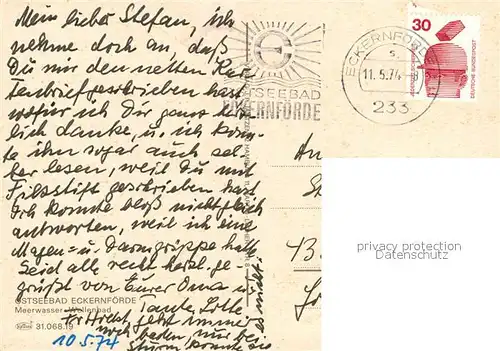 Mein lieber Stefan, ich
nehme doch an, daß
Du mir den netten Kar-
tenbrief geschrieben hast
wofür ich Dir ganz herz-
lich danke, u. ich konn-
te ihn sogar auch sel-
ber lesen, weil Du mit
Filzstift geschrieben hast
Ich konnte bloß nicht gleich
antworten, weil ich eine
Magen= u. Darmgrippe hatte
Seid alle recht herzl. ge-
grüßt von Eurer Oma u.
Tante Lotte
geht immer
noch baden nur bei
Sturm konnte sie
nicht
10.5.74
OSTSEEBAD ECKERNFÖRDE
Meerwasser-Wellenbad
31.068.19
OSTSEEBAD
ECKERNFÖRDE
ECKERNFÖRDE
11.5.74
233
30
DEUTSCHE BUNDESPOST
An
43
privacy protection
Datenschutz